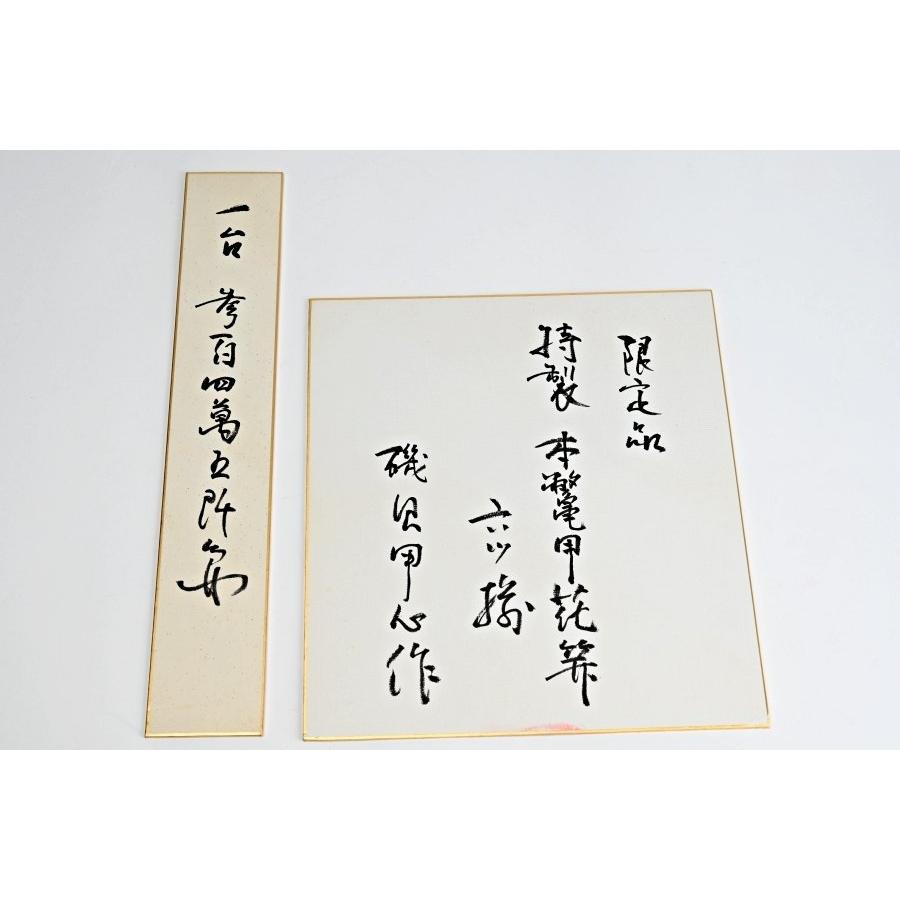 限定品
特製 本鼈甲花笄
六ツ揃
磯貝甲心作
一台 参百四萬五阡